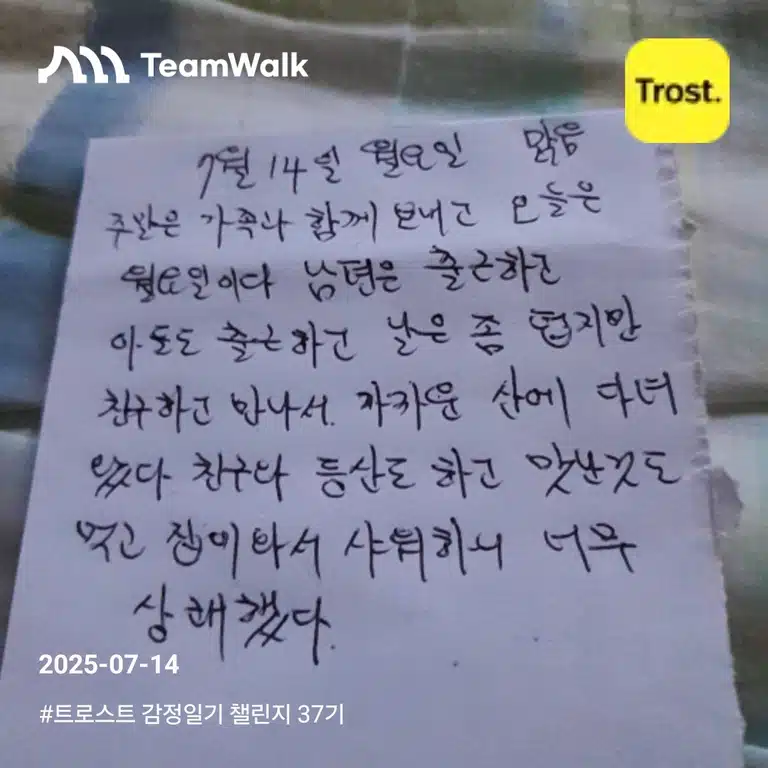 TeamWalk
Trost.
7월 14일 월요일 맑음
주말은 가족과 함께 보내고 오늘은
월요일이다 남편은 출근하고
아들도 출근하고 날은 좀 덥지만
친구하고 만나서. 가까운 산에 다녀
왔다 친구와 등산도 하고 맛난것도
먹고 집에 와서 샤워하니 너무
상쾌했다.
2025-07-14
#트로스트 감정일기 챌린지 37기